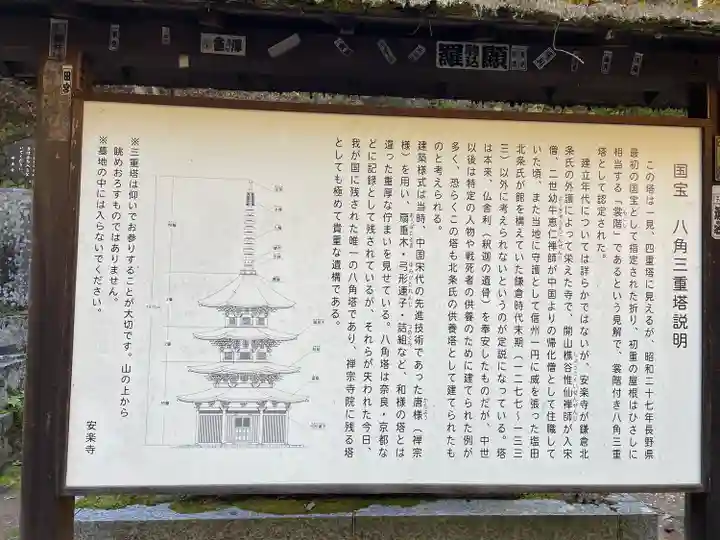 国宝 八角三重塔説明
この塔は一見、四重塔に見えるが、昭和二十七年長野県
最初の国宝として指定された折り、初重の屋根はひさしに
相当する「裳階」であるという見解で、裳階付き八角三重
塔として認定された。
建立年代については詳らかではないが、安楽寺が鎌倉北
条氏の外護によって栄えた寺で、開山樵谷惟仙禅師が入宋
僧、二世幼牛恵仁禅師が中国よりの帰化僧として住職して
いた頃、また当地に守護として信州一円に威を張った塩田
北条氏が館を構えていた鎌倉時代末期(一二七七〜一三三
三)以外に考えられないというのが定説になっている。塔
は本来、仏舎利(釈迦の遺骨)を奉安したものだが、中世
以後は特定の人物や戦死者の供養のために建てられた例が
多く、恐らくこの塔も北条氏の供養塔として建てられたも
のと考えられる。
建築様式は当時、中国宋代の先進技術であった唐様(禅宗
様)を用い、扇重木・弓形連子・詰組など、和様の塔とは
違った重厚な佇まいを見せている。八角塔は奈良・京都な
どに記録として残されているが、それらが失われた今日、
我が国に残された唯一の八角塔であり、禅宗寺院に残る塔
としても極めて貴重な遺構である。
※三重塔は仰いでお参りすることが大切です。山の上から
眺めおろすものではありません。
※墓地の中には入らないでください。
安楽寺